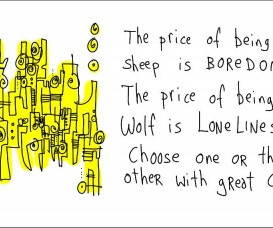 The price of being
sheep is
The price of being
Wolf is
Choose one or th
other with great